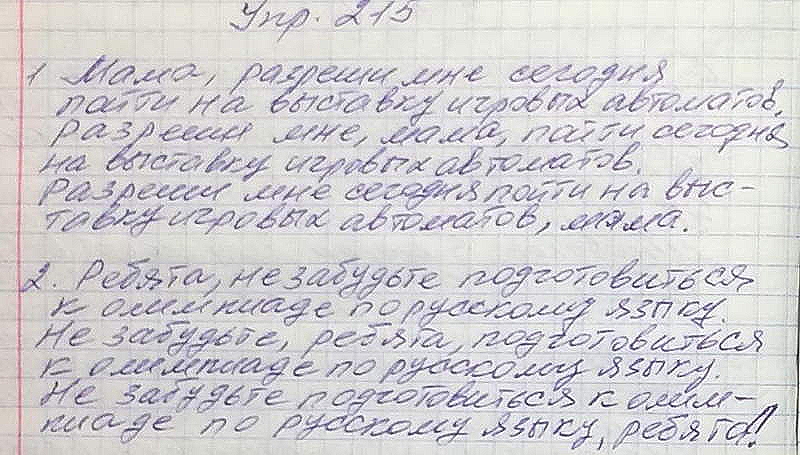 Упр. 215
1 Мама, разреши мне сегодня
пойти на выставку игровых автоматов.
Разреши мне, мама, пойти сегодня
на выставку игровых автоматов.
Разреши мне сегодня пойти на выс-
тавку игровых автоматов, мама.
2. Ребята, не забудьте подготовиться
к олимпиаде по русскому языку.
Не забудьте, ребята, подготовиться
к олимпиаде по русскому языку.
Не забудьте подготовиться к олим-
пиаде по русскому языку, ребята!